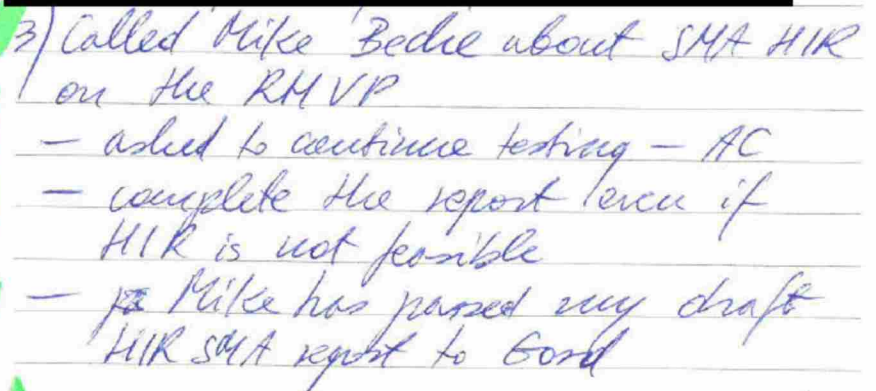 3) Called Mike Beche about SMA HIR
on the RMVP
- asked to continue testing - AC
- complete the report even if
HIR is not feasible
- Mike has passed my draft
HIR SMA report to